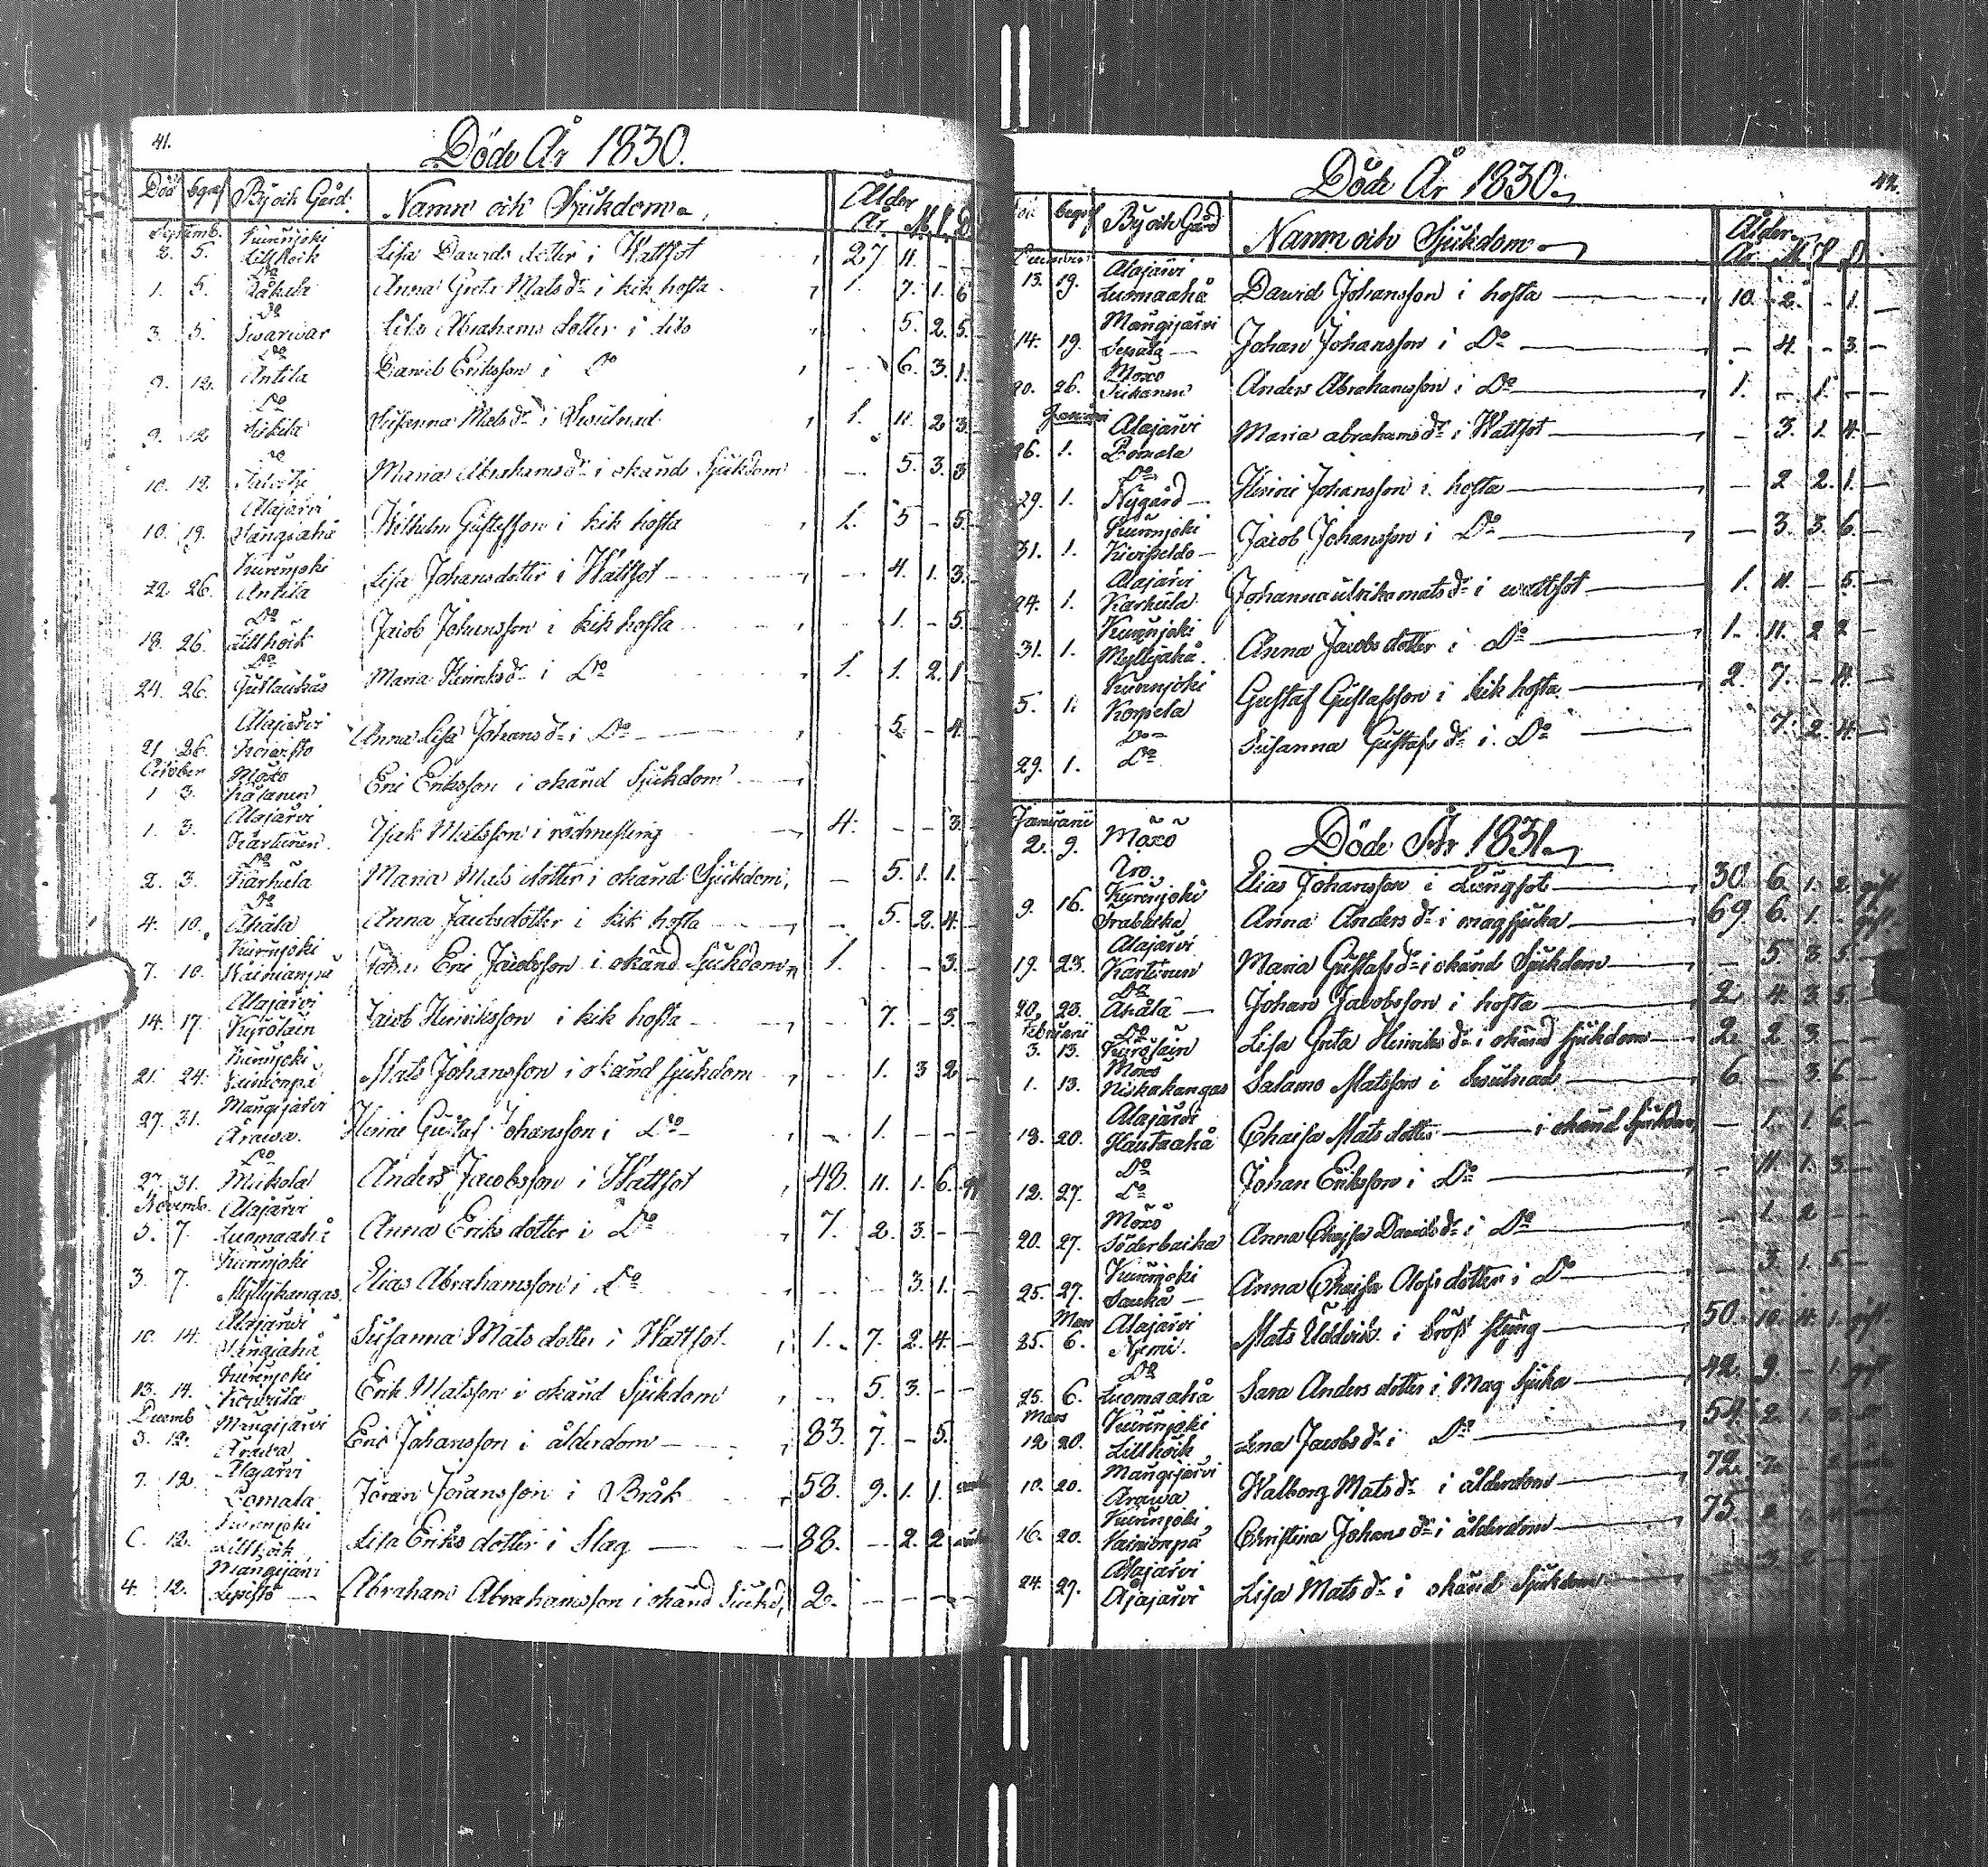 41.
Döde År 1830.
Död begrf By och Gård. Namn och Sjukdom Ålder
År. M. V. D.
Septemb. Kurenjoki
2. 5. Lillhöik Lisa Davids dotter i Wattsot 27 11. - -
Do
1. 5. Anna Greta Mats dr i kik hosta 1. 7. 1. 6
Do
3. 5. Swarwar Abrahams dotter i dito 5. 2. 5.
Do
9. 12. Antila Eriksson i Do - 6. 3. 1.
Do
9. 12 Susanna Mats dr i 1. 11. 2 3.
Do
10. 12 Maria Abrahams dr i okänd Sjukdom - 5. 3. 3
Alajärvi
10. 19. Hangiahå Wilhelm Gustafsson i kik hosta 1. 5 - 5.
Kurenjoki
22 26. Antila Lisa Johansdotter i Wattsot - 4. 1. 3.
Do
18. 26. Lillhöik Jacob Johansson i kik hosta 1. - 5.
Do
24. 26. Maria Henriks dr i Do 1. 1. 2. 1
Alajärvi
21 26. Anna Lisa Johans dr i Do 5. - 4.
October Möxö
1 3. Eric Eriksson i okänd Sjukdom
Alajärvi
1. 3. Karturen Isak Matsson i 4. - - 3.
Do
2. 3. Karhula Maria Mats dotter i okänd Sjukdom, - 5. 1. 1.
Do
4. 10. Ahåla Anna Jacobsdotter i kik hosta - 5. 2. 4.
Kurenjoki
7. 10. Wainionpä Eric Jacobsson i okänd Sjukdom 1. - - 3.
Alajärvi
14. 17. Kyrölain Jacob Henriksson i kik hosta - 7. - 3.
Kurenjoki
21. 24. Wainionpä Mats Johansson i okänd sjukdom - 1. 3 2
Mangijärvi
27. 31. Årawa. Henric Gustaf Johansson i Do - 1. - -
Do
27. 31. Mickola Anders Jacobsson i Wattsot 48. 11. 1. 6.
Novemb. Alajärvi
5. 7. Luomaahå Anna Eriks dotter i Do 7. 2. 3. - -
Kurenjoki
3. 7. Myllykangas Elias Abrahamsson i Do - - 3. 1.
Alajärvi
10. 14. Hangiahå Susanna Mats dotter i Wattsot. 1. 7. 2. 4.
Kurenjoki
13. 14. Erik Matsson i okänd Sjukdom - 5. 3. - -
Decemb Mangijärvi
3. 12. Årawa Eric Johansson i ålderdom 83. 7. - 5.
Alajärvi
7. 12. Lomala Jöran Jöransson i Bråk 58. 9. 1. 1.
Kurenjoki
12. Lillhöik Lisa Eriks dotter i Slag 88. - 2. 2
Mangijärvi
4. 12. Lepistö Abraham Abrahamsson i okänd Siukd, 2. - - -
42.
Döde År 1830.
begrf By och Gård Namn och Sjukdom Ålder
År. M. V. D.
Alajärvi
13. 19. Luomaahå David Johansson i hosta 10. 2. - 1.
Mangijärvi
14. 19. Johan Johansson i Do - 4. - 3.
Möxö
20. 26. Anders Abrahamsson i Do 1. - 1. -
Januari Alajärvi
26. 1. Lomala Maria abrahams dr i Wattsot - 3. 1. 4.
Do
29. 1. Nygård Henric Johansson i hosta - 2 2. 1.
Kurenjoki
31. 1. Jacob Johansson i Do - 3. 3. 6.
Alajärvi
24. 1. Karhula Johanna ulrika mats dr i wattsot 1. 11. - 5.
Kurenjoki
31. 1. Myllyahå. Anna Jacobs dotter i Do 1. 11. 2 2
Kurenjoki
5. 1. Korpela Gustaf Gustafsson i kik hosta 2. 7. - 4.
Do
29. 1. Do Susanna Gustafs dr i Do 7. 2. 4.
Januari
Döde År 1831.
2. 9. Möxö
Uro. Elias Johansson i Lungsot 30. 6. 1. 2. gift
Kurenjoki
9. 16. Anna Anders dr i magsjuka 69. 6. 1.
Alajärvi
19. 23. Karturen Maria Gustafs dr i okänd Sjukdom - 5. 3. 5.
Do
20. 23. Ahåla Johan Jacobsson i hosta 2. 4. 3. 5.
Februari Do
3. 13. Kyrölain Lisa Greta Henriks dr i okänd sjukdom 2. 2. 3. -
Möxö
1. 13. Niskakangas Salamo Matsson i 6. - 3. 6
Alajärvi
18. 20. Hautaahå Chaisa Mats dotter i okänd Sjukdom - 1. 1. 6.
Do
12. 27. Do Johan Eriksson i Do - 11. 1. 3.
Möxö
20. 27. Söderbacka Anna Chajsa Davids dr i Do - 1. 2
Kurenjoki
25. 27. Saukå Anna Chaisa Olofs dotter i Do - 3. 1. 5.
Mars Alajärvi
25. 6. Niemi. Mats Uddvik i bröst styng 50. 10. 4. 1. gift.
Do
25. 6. Luomaahå Sara Anders dotter i Mag Sjuka 42. 9. - 1. gift
Mars Kurenjoki
12 20. Lillhöik Lena Jacobs dr i Do 54. 2. 1.
Mangijärvi
10. 20. Årawa Walborg Mats dr i ålderdom 72.
Kurenjoki
16. 20. Wainionpä Christina Johans dr i ålderdom 75.
Alajärvi
24. 27. Alajärvi Lisa Mats dr i okänd Sjukdom - 3. 2